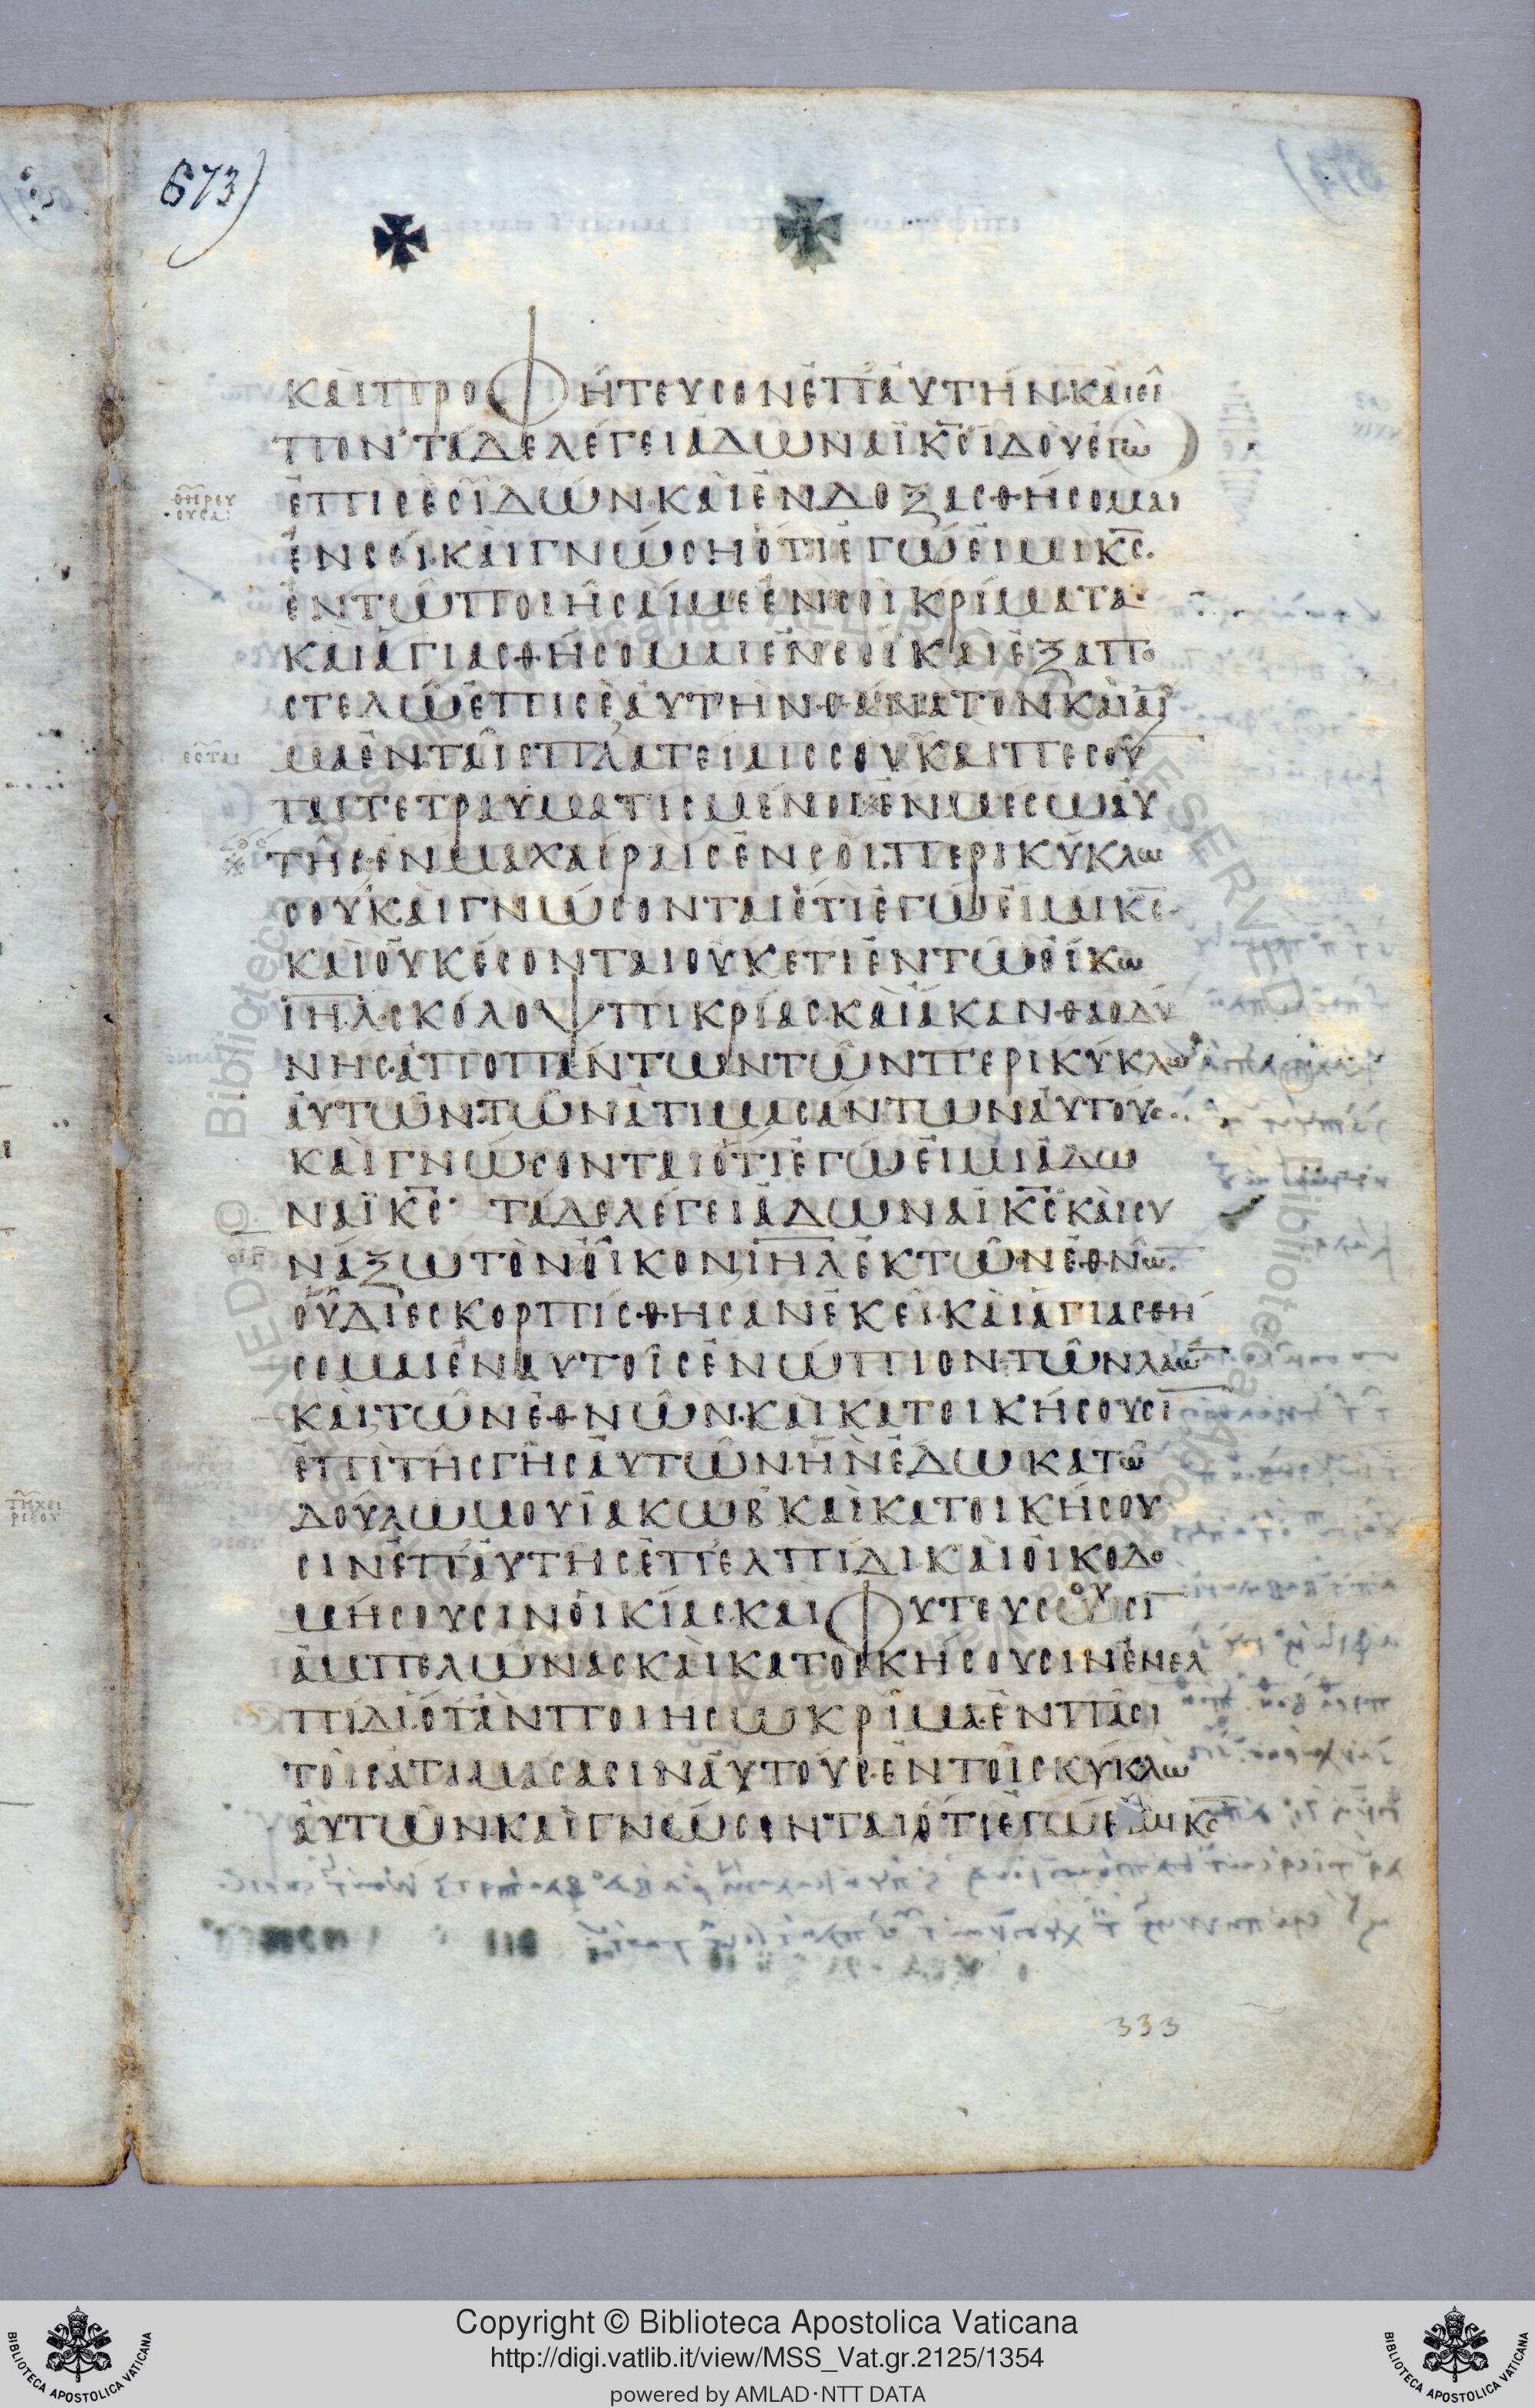 673)
ΚΑῚΠΡΟΦΉΤΕΥΣΟΝἘΠ'ἈΥΤΉΝ·ΚΑῚΕἸ
ΠΟΝ·ΤΆΔΕΛΈΓΕΙἈΔΩΝΑΪΚ̅Σ̅ἸΔΟῪἘΓῺ
ἘΠΙΣῈΣΙΔΏΝ·ΚΑῚἘΝΔΟΞΑΣΘΉΣΟΜΑΙ
ἘΝΣΟΊ·ΚΑῚΓΝΏΣΗὍΤΙἘΓΏΕΙΜΙΚ̅Σ̅·
ἘΝΤΩΠΟΙΗΣΑΊΜΕἘΝΣΟῚΚΡΊΜΑΤΑ·
ΚΑῚἉΓΙΑΣΘΉΣΟΜΑΙἘΝΣΟΊΚΑῚἘΞΑΠΟ
ΣΤΕΛΩἘΠΙΣῈἈΥΤῊΝ·ΘΆΝΑΤΟΝΚΑῚΑἿ
ΜΑἘΝΤΑΙΣΠΛΑΤΕΊΑΙΣΣΟΥΚΑῚΠΕΣΟΥ
ΤΑΙΤΕΤΡΑΥΜΑΤΙΣΜΈΝΟΙ·ἘΝΜΕΣΩἈΥ
ΤΗΣ·ἘΝΜΑΧΑΊΡΑΙΣἘΝΣΟΙ·ΠΕΡΙΚΎΚΛΩ
ΣΟΥ·ΚΑῚΓΝΏΣΟΝΤΑΙὍΤΙἘΓΏΕΙΜΙΚ̅Σ̅·
ΚΑῚΟΥΚΈΣΟΝΤΑΙΟΥΚΕΤΙἘΝΤΩΟΊΚΩ
Ι̅Η̅Λ̅·ΣΚΌΛΟΨΠΙΚΡΊΑΣ·ΚΑῚἌΚΑΝΘΑΟΔΎ
ΝΗΣ·ἈΠΟΠΆΝΤΩΝΤΩΝΠΕΡΙΚΎΚΛΩ
ἈΥΤΩΝ·ΤΩΝἈΤΙΜΑΣΆΝΤΩΝἈΥΤΟΎΣ·
ΚΑῚΓΝΏΣΟΝΤΑΙὍΤΙἘΓΏΕΙΜΙἈΔΩ
ΝΑΪΚ̅Σ̅· ΤΆΔΕΛΈΓΕΙἈΔΩΝΑΪΚ̅Σ̅·ΚΑῚΣΥ
ΝΆΞΩΤῸΝΟΙΚΟΝΙ̅Η̅Λ̅ἘΚΤΩΝἘΘΝΩ̅·
ΟΥΔΙΕΣΚΟΡΠΊΣΘΗΣΑΝἘΚΕΙ·ΚΑῚἉΓΙΑΣΘΉ
ΣΟΜΑΙἘΝΑΥΤΟΙΣἘΝΏΠΙΟΝ·ΤΩΝΛΑΩ̅
ΚΑῚΤΩΝἘΘΝΩΝ·ΚΑῚΚΑΤΟΙΚΉΣΟΥΣΙ̅
ἘΠῚΤΗΣΓΗΣἈΥΤΩΝ·ΗΝἜΔΩΚΑΤΩ
ΔΟΎΛΩΜΟΥΪΑΚΩΒ·ΚΑῚΚΑΤΟΙΚΉΣΟΥ
ΣΙΝἘΠ'ἈΥΤΗΣἘΠ'ΕΛΠΊΔΙ·ΚΑῚΟΙΚΟΔΟ
ΜΉΣΟΥΣΙΝΟΙΚΊΑΣ·ΚΑῚΦΥΤΕΥΣΟΥΣΙ̅
ἈΜΠΕΛΩΝΑΣΚΑῚΚΑΤΟΙΚΉΣΟΥΣΙΝἘΝΕΛ
ΠΊΔΙ·ὍΤ'ἈΝΠΟΙΗΣΩΚΡΊΜΑ·ἘΝΠΑΣΙ
ΤΟΙΣἈΤΙΜΆΣΑΣΙΝἈΥΤΟΎΣ·ἘΝΤΟΙΣΚΎΚΛΩ
ἈΥΤΩΝΚΑῚΓΝΏΣΟΝΤΑΙὍΤΙἘΓΏΕΙΜΙΚ̅Σ̅
333
Copyright © Biblioteca Apostolica Vaticana
http://digi.vatlib.it/view/MSS_Vat.gr.2125/1354
powered by AMLAD·NTT DATA
BIBLIOTECA APOSTOLICA VATICANA
BIBLIOTECA APOSTOLICA VATICANA